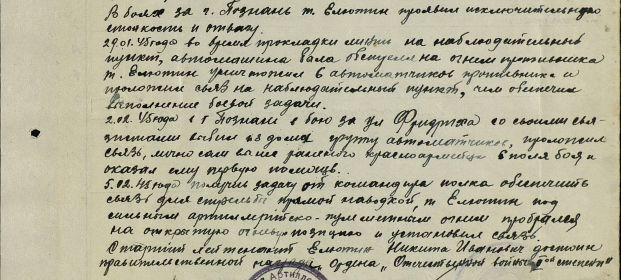 В боях за г. Познань т. Елютин проявил исключительную
стойкость и отвагу.
29.01.45 года во время прокладки линии на наблюдательный
пункт, автомашина была обстреляна огнем противника
т. Елютин уничтожил 6 автоматчиков противника и
проложил связь на наблюдательный пункт, чем обеспечил
выполнение боевой задачи.
2.02.45 года в г Познань в бою за ул Фридриха со своими свя-
зистами выбил из дома группу автоматчиков, проложил
связь, лично сам вынес раненого красноармейца с поля боя и
оказал ему первую помощь.
5.02.45 года получив задачу от командира полка обеспечить
связь для стрельбы прямой наводкой, т Елютин под
сильным артиллерийско-пулеметным огнем пробрался
на открытую огневую позицию и установил связь.
Старший лейтенант Елютин Никита Иванович достоин
правительственной награды Ордена „Отечественной войны II ой степени"
АРТИЛЛ